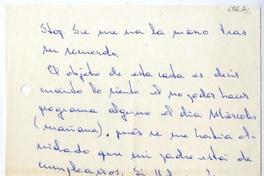 Stgo. Se me va la mano tras
su recuerdo.
El objeto de esta carta es decir
cuanto lo siento el no poder hacer
programa alguno el día Miércoles
(mañana), pués se me había ol-
vidado que mi padre está de
cumpleaños. Si Ud.